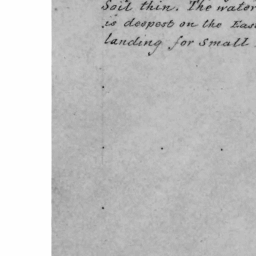 Soil thin. The water
is deepest on the Eas
landing for Small